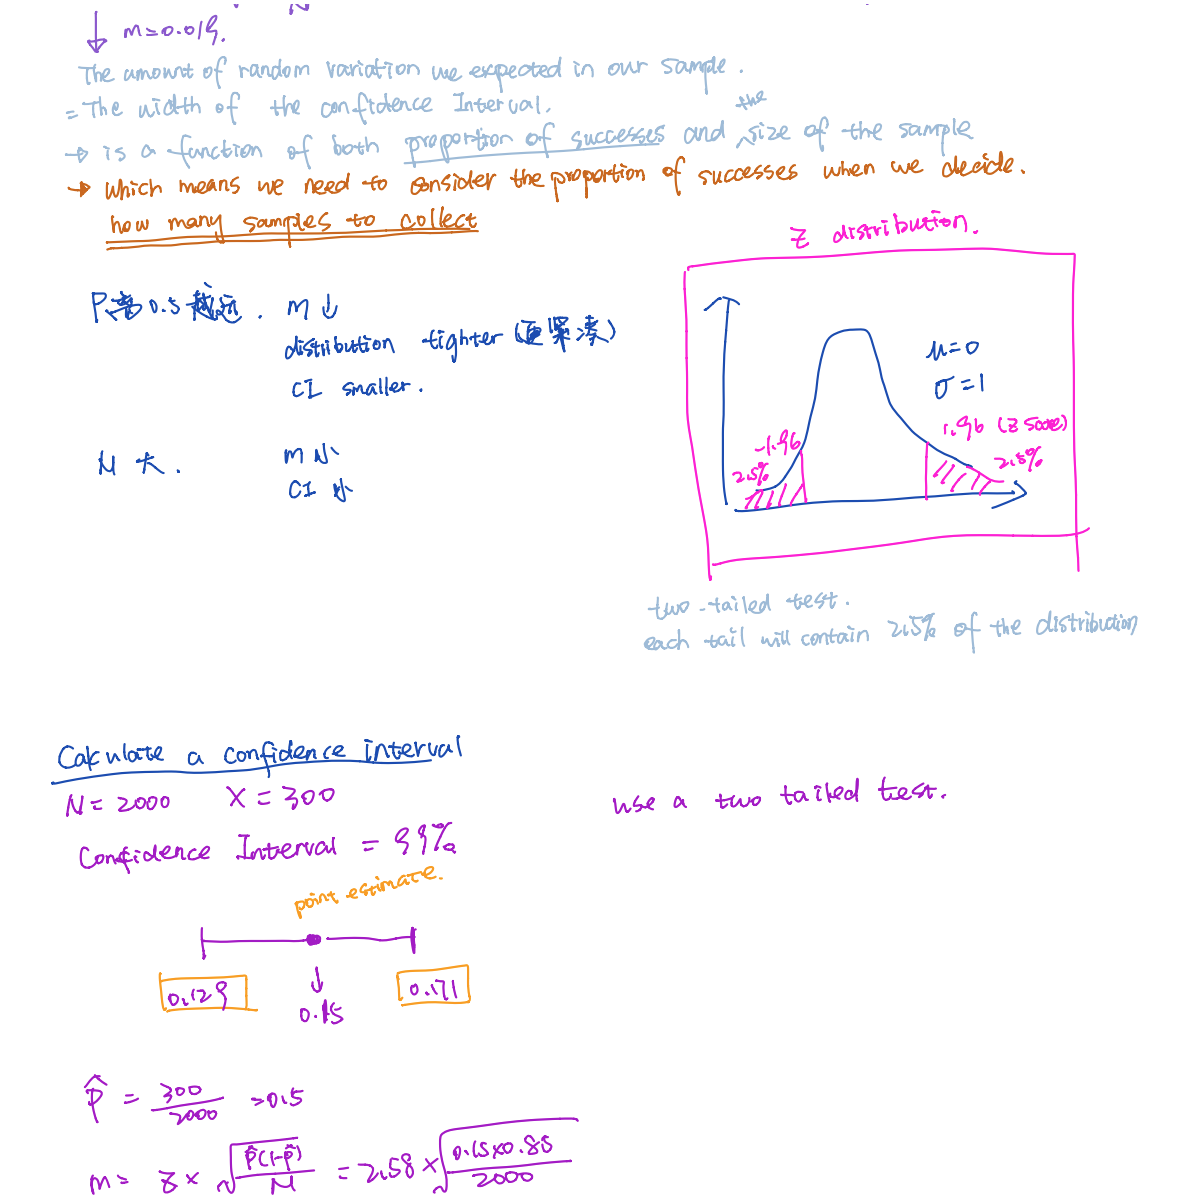 m=0.019.
The amount of random variation we expected in our sample.
= The width of the confidence Interval.
→ is a function of both proportion of successes and the size of the sample
→ which means we need to consider the proportion of successes when we decide.
how many samples to collect
Z distribution.
P离0.5越远. m↓
distribution tighter (更紧凑)
CI smaller.
μ=0
σ=1
-1.96
1.96 (Z score)
2.5%
2.5%
N 大. m 小
CI 小
two-tailed test.
each tail will contain 2.5% of the distribution
Calculate a confidence interval
N = 2000 X = 300
use a two tailed test.
Confidence Interval = 99%
point estimate.
0.129 0.15 0.171
p̂ = 300/2000 =0.5
m= z × √(p̂(1-p̂)/N) = 2.58 × √(0.15×0.85/2000)